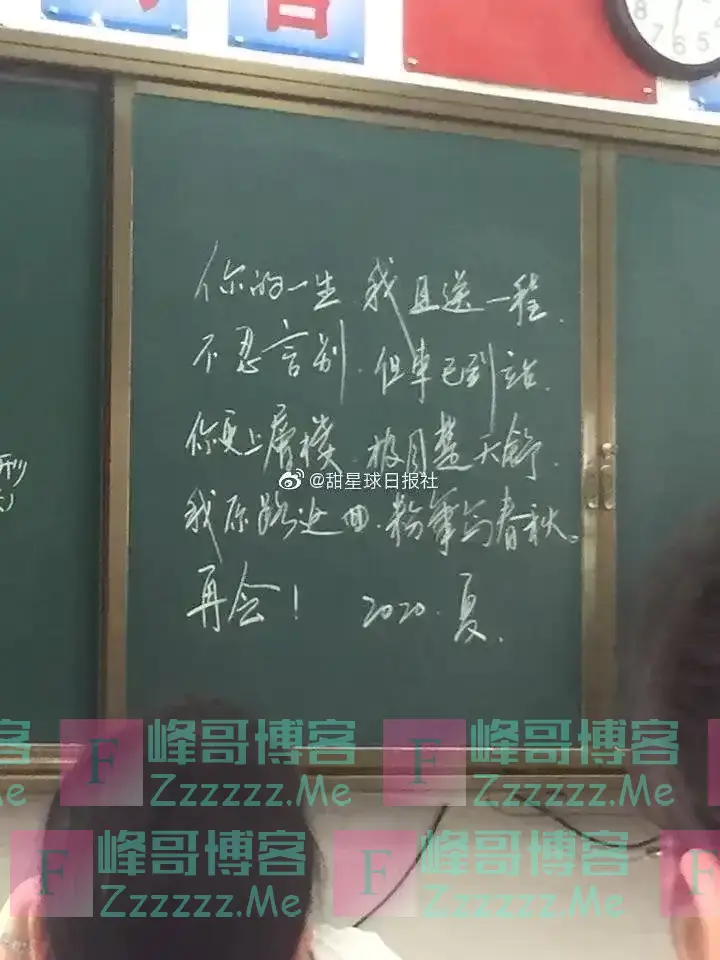 8 7 6 5
你的一生,我且送一程.
不忍言别.但车已到站.
你更上层楼.极目楚天舒.
@甜星球日报社
我原路返回.粉笔写春秋。
再会! 2020.夏.
F 峰哥博客 F 峰哥博客
Zzzzzz.Me Zzzzzz.Me
F 峰哥博客 F 峰哥博客
Zzzzzz.Me Zzzzzz.Me